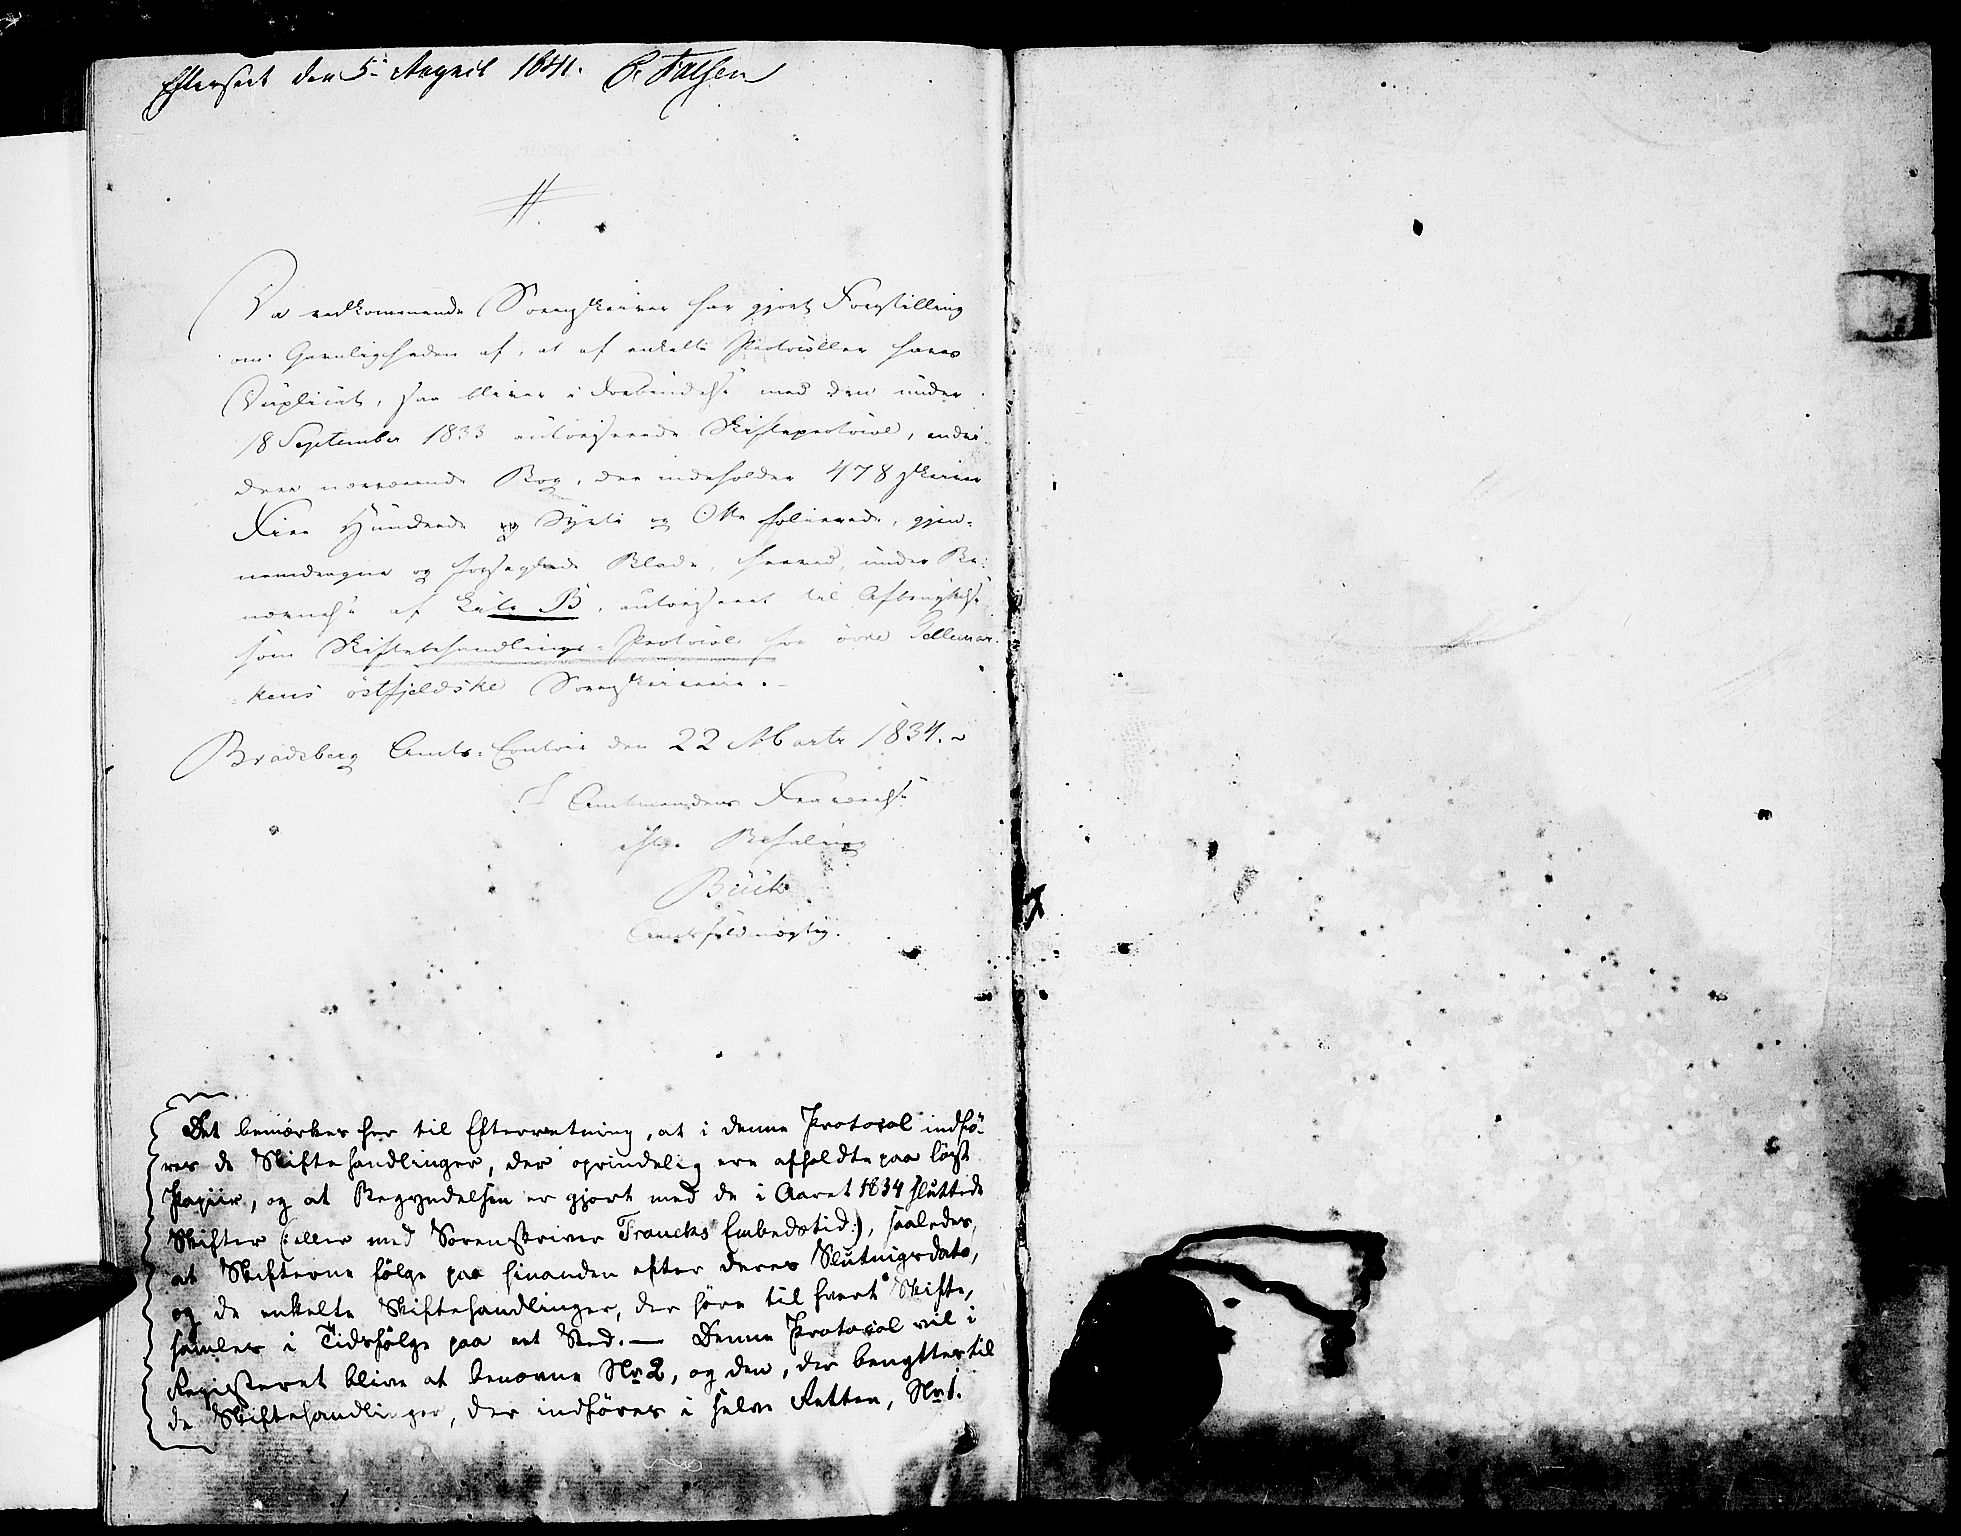 Efterseet den 5te August 1841. C. Falsen
Da vedkommende Sorenskriver har gjort Forestilling
om Gavnligheden af, at af enkelte Protocoller haves
Duplicat, saa bliver i Forbindelse med den under
18 September 1833 autoriserede Skifteprotocol, endvi-
dere nærværende Bog, der indeholder 478 skriver
Fire Hundrede og Sytti og Otte folierede, gjen-
nemdragne og forseglede Blade, herved, under Be-
nævnelse af Litr B, autoriseret til Afbenyttelse
som Skiftebehandlings-Protocol for övre Tellemar-
kens östfjeldske Sorenskriverie.
Bradsberg Amts-Contoir den 22 Marts 1834.
I Amtmandens Fraværelse
efter Befaling
Buck
Amtsfuldmægtig.
Det bemærkes her til Efterretning, at i denne Protocol indfö-
res de Skiftehandlinger, der oprindelig ere afholdte paa löst
Papiir, og at Begyndelsen er gjort med de i Aaret 1834 sluttede
Skifter (: eller med Sorenskriver Francks Embedstid :), saaledes,
at Skifterne fölge paa hinanden efter deres Slutnigsdato,
og de enkelte Skiftehandlinger, der höre til hvert Skifte,
samles i Tidsfölge paa eet Sted. — Denne Protocol vil i
Registeret blive at benævne No 2, og den, der benyttes til
de Skiftehandlinger, der indföres i selve Retten, No 1.